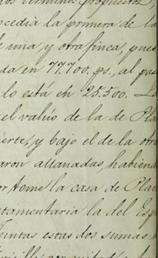 ocedia la primera de la
una, y otra finca, pues
da en 77.700. ps, al pas
lo está en 25.500. La
el valúo de la de Pla
uerte, y bajo el de la otra
aron allanadas, habiendo
la casa de Plat
ntamentaria la del Esp
untas estas dos sumas